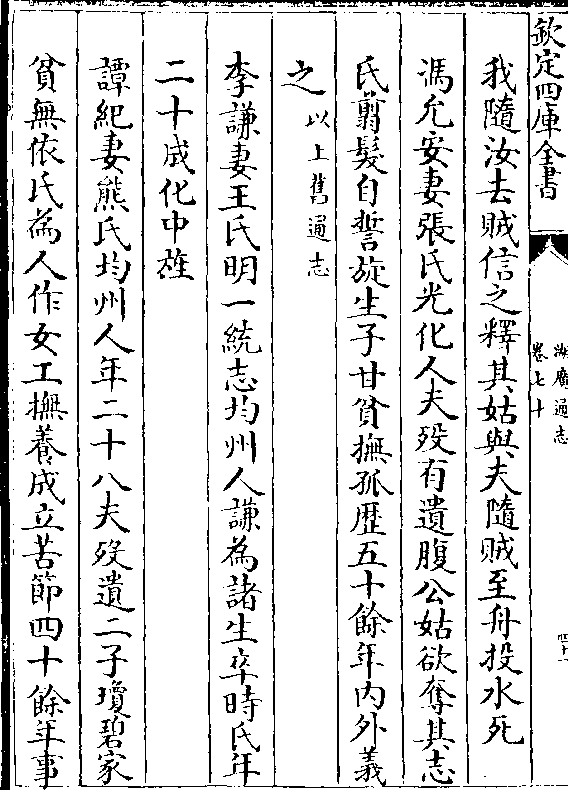 欽定四庫全書
湖廣通志
卷七十
四十一
我隨汝去賊信之釋其姑與夫隨賊至舟投水死
馮允安妻張氏光化人夫歿有遺腹公姑欲奪其志
氏翦髮自誓旋生子甘貧撫孤歴五十餘年内外義
之以上舊通志
李謙妻王氏明一統志均州人謙為諸生卒時氏年
二十成化中旌
譚紀妻熊氏均州人年二十八夫歿遺二子瓊碧家
貧無依氏為人作女工撫養成立苦節四十餘年事